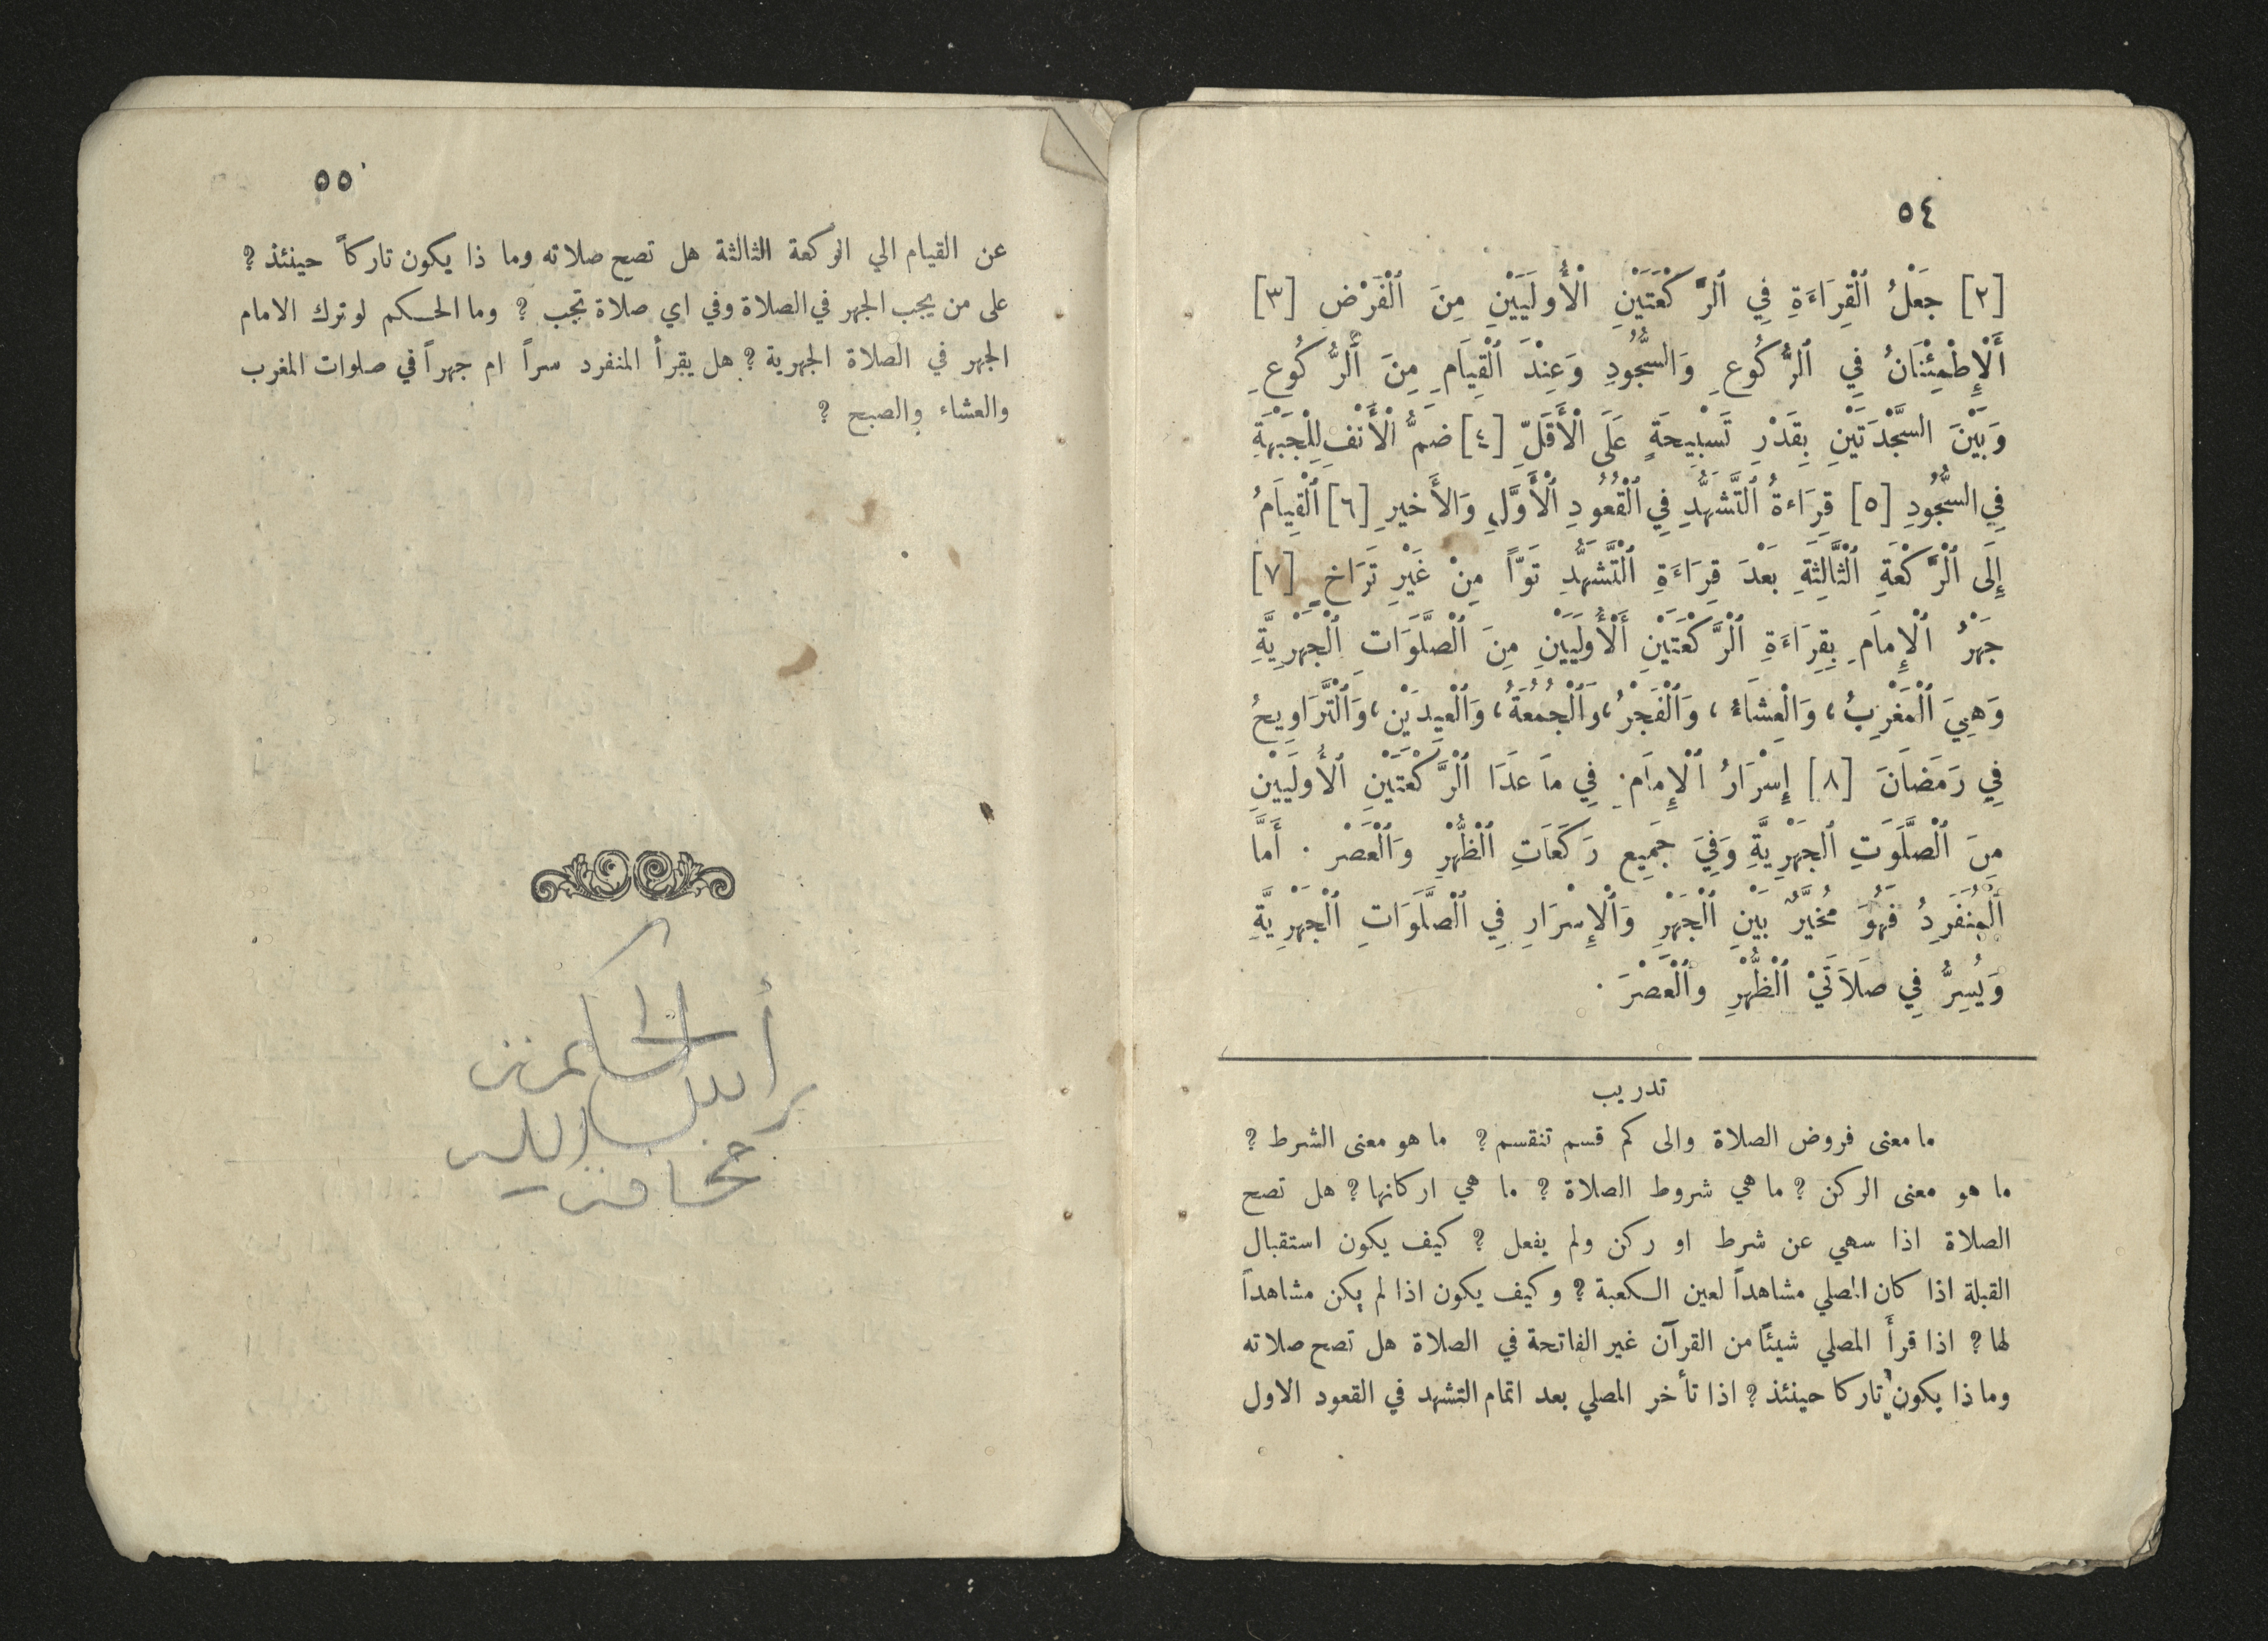 ٥٤
[٢] جَعْلُ ٱلْقِرَاءَةِ فِي ٱلرَّكْعَتَيْنِ ٱلْأُولَيَيْنِ مِنَ ٱلْفَرْضِ [٣]
أَلْإِطْمِئْنَانُ فِي ٱلرُّكُوعِ وَالسُّجُودِ وَعِنْدَ ٱلْقِيَامِ مِنَ ٱلرُّكُوعِ
وَبَيْنَ السَّجْدَتَيْنِ بِقَدْرِ تَسْبِيحَةٍ عَلَى ٱلْأَقَلِّ [٤] ضَمُّ ٱلْأَنْفِ لِلْجَبْهَةِ
فِي السُّجُودِ [٥] قِرَاءةُ ٱلتَّشَهُّدِ فِي ٱلْقُعُودِ ٱلْأَوَّلِ وَالأَخيرِ [٦] ٱلْقِيَامُ
إِلَى ٱلْرَّكْعَةِ ٱلْثَّالِثَةِ بَعْدَ قِرَاءَةِ ٱلْتَّشَهُّدِ تَوّاً مِنْ غَيْرِ تَرَاخٍ [٧]
جَهْرُ ٱلْإِمَامِ بِقِرَاءَةِ ٱلْرَّكْعَتَيْنِ أَلْأُولَيَيْنِ مِنَ ٱلْصَّلَوَاتِ ٱلْجَهْرِيَّةِ
وَهِيَ ٱلْمَغْرِبُ، وَالْعِشَاءُ، وَٱلْفَجْرُ، وَٱلْجُمُعَةُ، وَٱلْعِيدَيْنِ، وَٱلْتَّرَاوِيحُ
فِي رَمَضَانَ [٨] إِسْرَارُ ٱلْإِمَامِ فِي مَا عَدَا ٱلْرَّكْعَتَيْنِ ٱلأُولَيَيْنِ
مِنَ ٱلْصَّلَوَتِ ٱلجَهْرِيَّةِ وَفِيَ جَمِيعِ رَكَعَاتِ ٱلْظُّهْرِ وَٱلْعَصْرْ . أَمَّا
ٱلْمُنْفَرِدُ فَهُوَ مُخَيَّرٌ بَيْنِ ٱلْجَهْرِ وَٱلْإِسْرَارِ فِي ٱلْصَّلَوَاتِ ٱلْجَهْرِيَّةِ
وَيُسِرُّ فِي صَلَاَتَيْ ٱلْظُّهْرِ وٱلْعَصْرَ .
تدريب
ما معنى فروض الصلاة والى كم قسم تنقسم ? ما هو معنى الشرط ?
ما هو معنى الركن ? ما هي شروط الصلاة ? ما هي اركانها ? هل تصح
الصلاة اذا سهي عن شرط او ركن ولم يفعل ? كيف يكون استقبال
القبلة اذا كان المصلي مشاهداً لعين الكعبة ? وكيف يكون اذا لم يكن مشاهداً
لها ? اذا قرأَ المصلي شيئاً من القرآن غير الفاتحة في الصلاة هل تصح صلاته
وما ذا يكون تاركا حينئذ ? اذا تأخر المصلي بعد اتمام التشهد في القعود الاول
٥٥
عن القيام الي الركعة الثالثة هل تصح صلاته وما ذا يكون تاركاً حينئذ ?
على من يجب الجهر في الصلاة وفي اي صلاة تجب ? وما الحكم لو ترك الامام
الجهر في الصلاة الجهرية ? هل يقرأ المنفرد سراً ام جهراً في صلوات المغرب
والعشاء والصبح ?